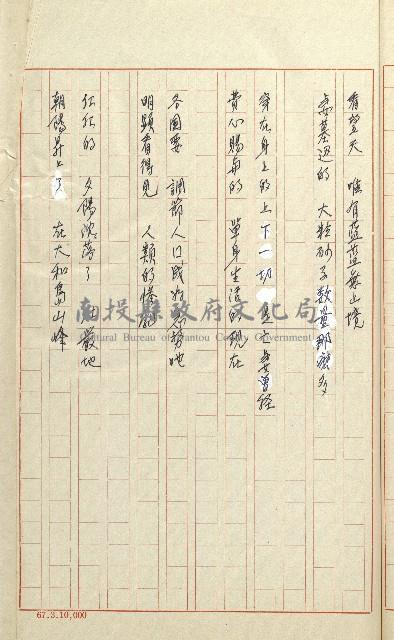 看蒼天　唯有藍藍無止境
妻墓邊的　大粒砂子數量那麼多
穿在身上的上下一切　是亡妻曾経
費心賜與的　單身生活的現在
各国要　調節人口或將 姿勢吧
明顯看得見　人類的慘
紅紅的　夕陽 落了 嚴地
朝陽昇上了　在大和島山峰
南投縣政府文化局
Cultural Bureau of Nantou County Government
67.3.10,000